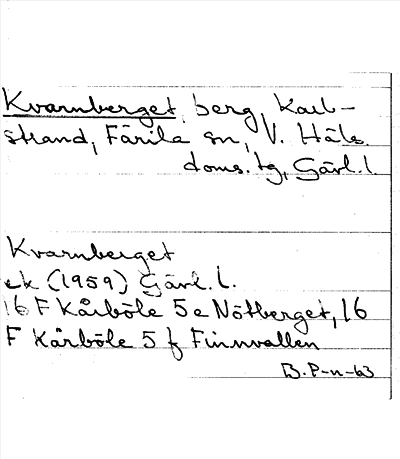 Kvarnberget, berg, Karl-
strand, Färila sn, V. Häls.
doms. tg, Gävl. l.
Kvarnberget
ek (1959) Gävl. l.
16 F Kårböle 5 e Nötberget, 16
F Kårböle 5 f Finnvallen
B. P-n -63